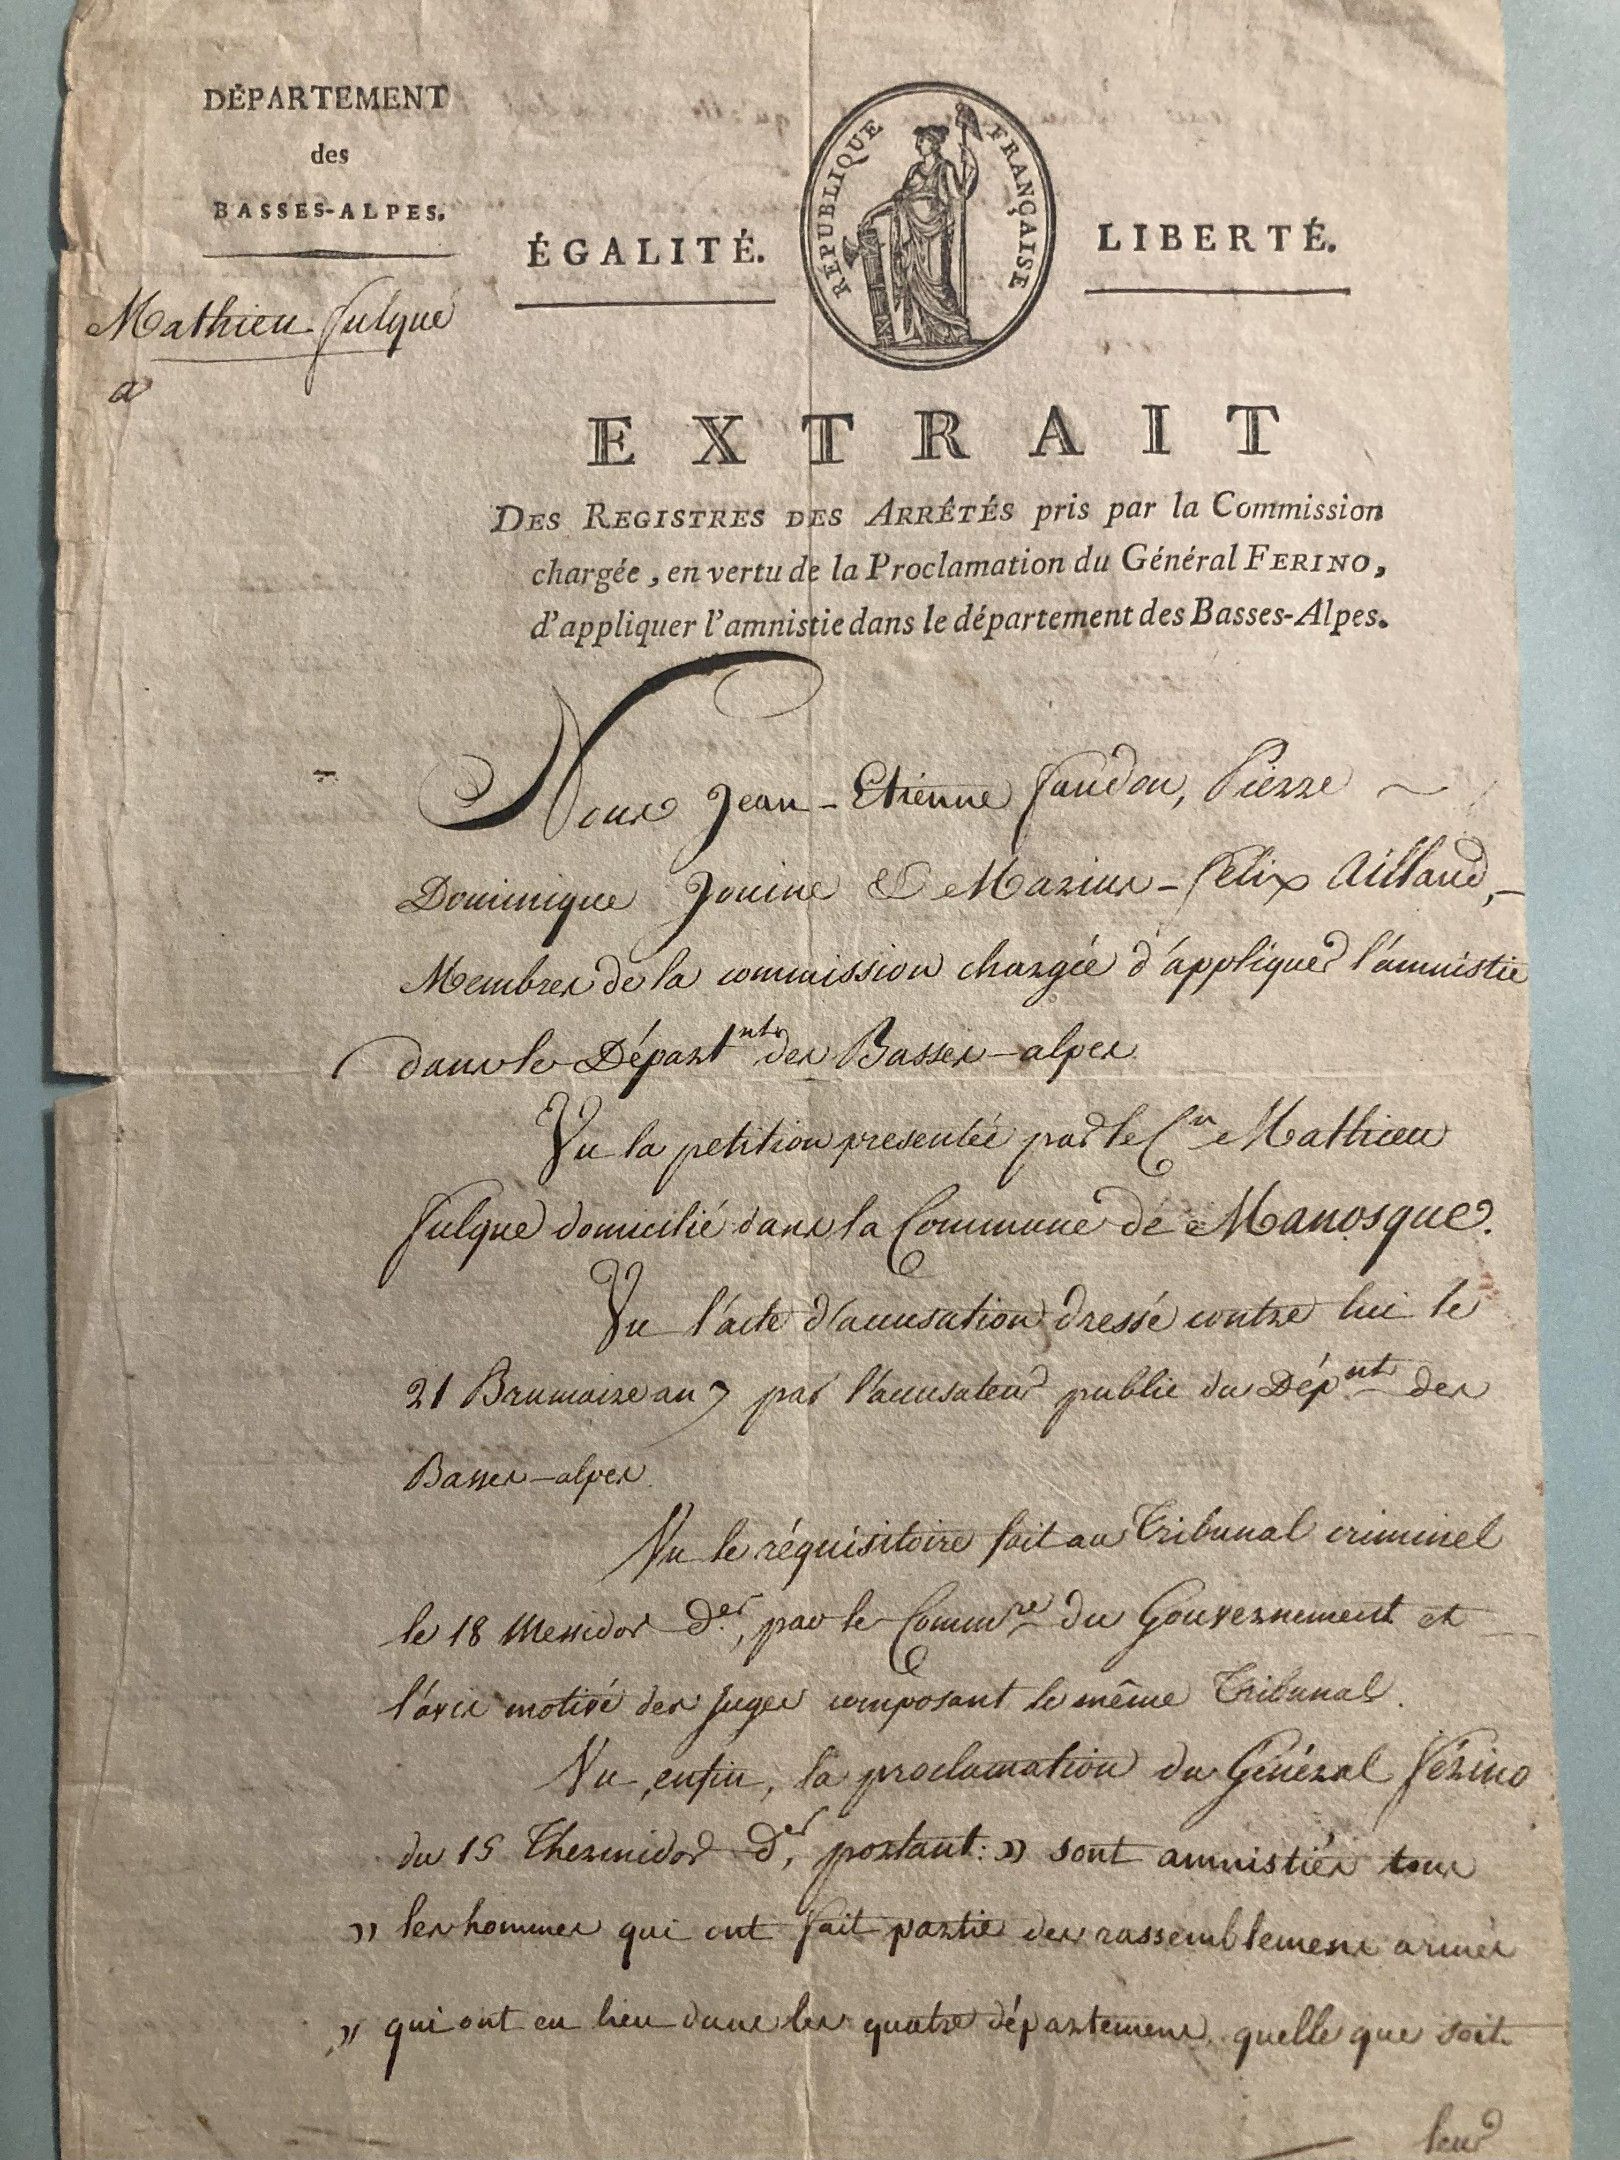 DÉPARTEMENT
des
BASSES-ALPES.
Mathieu fulque
a
ÉGALITÉ.
RÉPUBLIQUE FRANÇAISE
LIBERTÉ.
EXTRAIT
DES REGISTRES DES ARRÊTÉS pris par la Commission
chargée, en vertu de la Proclamation du Général FERINO,
d'appliquer l'amnistie dans le département des Basses-Alpes.
Nous Jean-Etienne faudon, Pierre ~
Dominique Jouine & Marius-felix Aillaud, -
Membres de la commission chargée d'appliquer l'amnistie
dans le Départnt des Basses-alpes
Vu la petition presentée par le Cn Mathieu
fulque domicilié dans la Commune de Manosque.
Vu l'acte d'accusation dressé contre lui le
21 Brumaire an 7 par l'accusateur public du Dépnt des
Basses-alpes
Vu le réquisitoire fait au Tribunal criminel
le 18 Messidor der, par le Commre du Gouvernement et
l'avis motivé des juges composant le même Tribunal.
Vu, enfin, la proclamation du Général férino
du 15 Thermidor der, portant: » sont amnistiés tous
» les hommes qui ont fait partie des rassemblemens armés
» qui ont eu lieu dans les quatre départemens, quelle que soit
leur